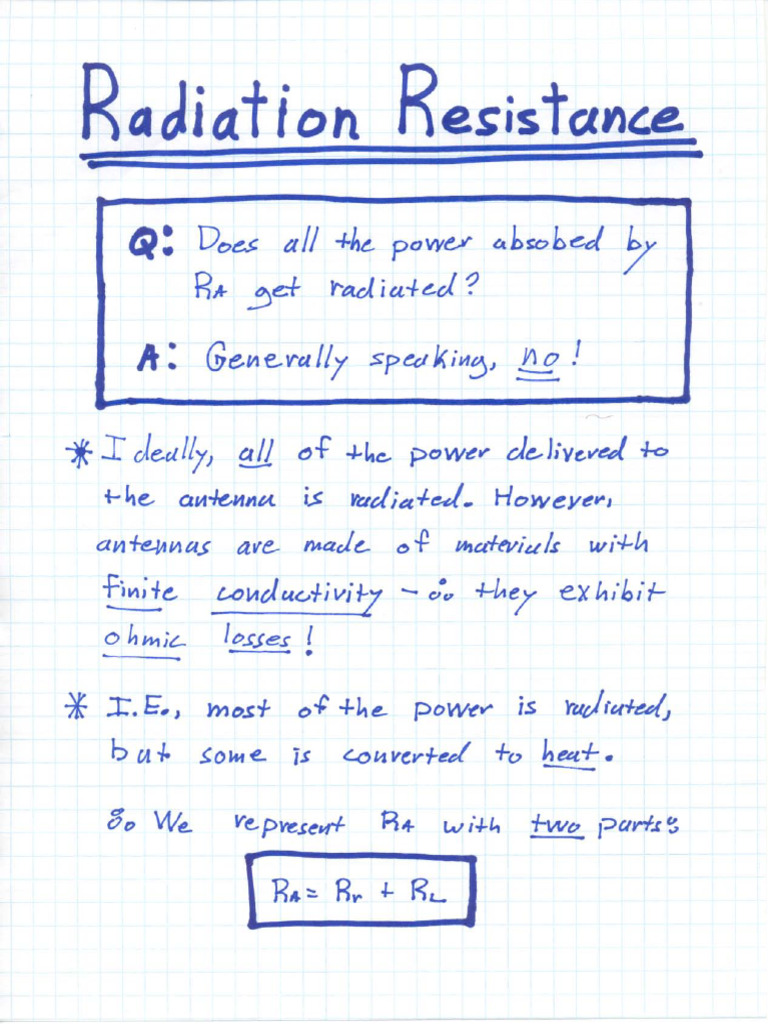 Radiation Resistance
Q: Does all the power absobed by
RA get radiated?
A: Generally speaking, no!
* Ideally, all of the power delivered to
the antenna is radiated. However,
antennas are made of materials with
finite conductivity – ∴ they exhibit
ohmic losses!
* I.E., most of the power is radiated,
but some is converted to heat.
∴ We represent RA with two parts:
RA = Rr + RL